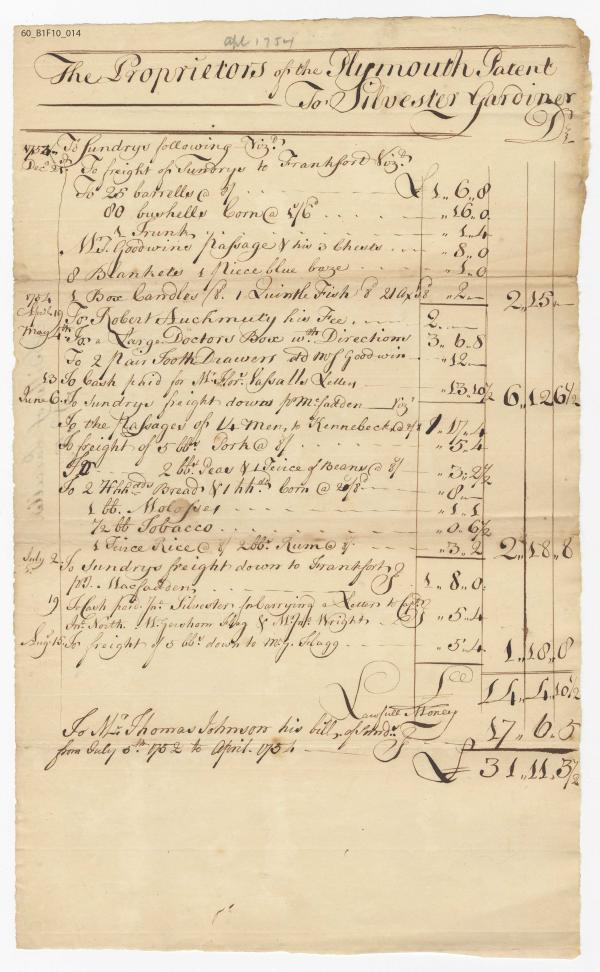 60_B1F10_014
apl 1754
The Proprietors of the Plymouth Patent
To Silvester Gardiner
Dr
1754 To Sundrys following Vizt
Decr To freight of Sundrys to Frankfort Vizt
To 25 barrells @ £1,, 6,, 8
80 bushells Corn @ ,, 16,, 0
1 Trunk ,, 1,, 4
Wm Goodwins Passage & his 3 Chests ,, 8,, 0
8 Blankets 1 Piece blue baze ,, 1,, 0
1 Box Candles 1 Quintle Fish ,, 2,, — 2,, 15,, —
1754
April 19 To Robert Auchmuty his Fee 2
May 4th To a Large Doctors Box wth Directions 3,, 6,, 8
To 2 Pair Tooth Drawers dd Mr Goodwin ,, 12 —
13 To Cash paid for Mr Flor. Vassalls Letter ,, 13,, 10½ 6,, 12,, 6½
June 6 To Sundrys freight down pr McFadden Vizt
To the Passages of 14 Men, to Kennebeck 1,, 17,, 4
To freight of 5 bbs Pork @ 8/ ,, 5,, 4
2 bbs Peas & 1 Teirce of Beans @ 8/ ,, 3,, 2½
To 2 Hhhds Bread & 1 hhd Corn @ ,, 8,, —
1 bb. Molosses ,, 1,, 1
½ bb Tobacco ,, 0,, 6½
1 Teirce Rice @ 2 bbs Rum @ ,, 3,, 2 2,, 18,, 8
July 2 To Sundrys freight down to Frankfort
pr Macfadden 1,, 8,, 0
19 To Cash paid Silvester for Carrying a Letter to
Jno North Wm Gershom Flag & Wright ,, 5,, 4
Augt 15 To freight of 5 bbs down to Mr G. Flagg ,, 5,, 4 1,, 18,, 8
Lawfull Money 14,, 4,, 10½
To Mr Thomas Johnson his bill, of Sundrs 17,, 6,, 5
from July 5th 1752 to April 1754
£ 31,, 11,, 3½